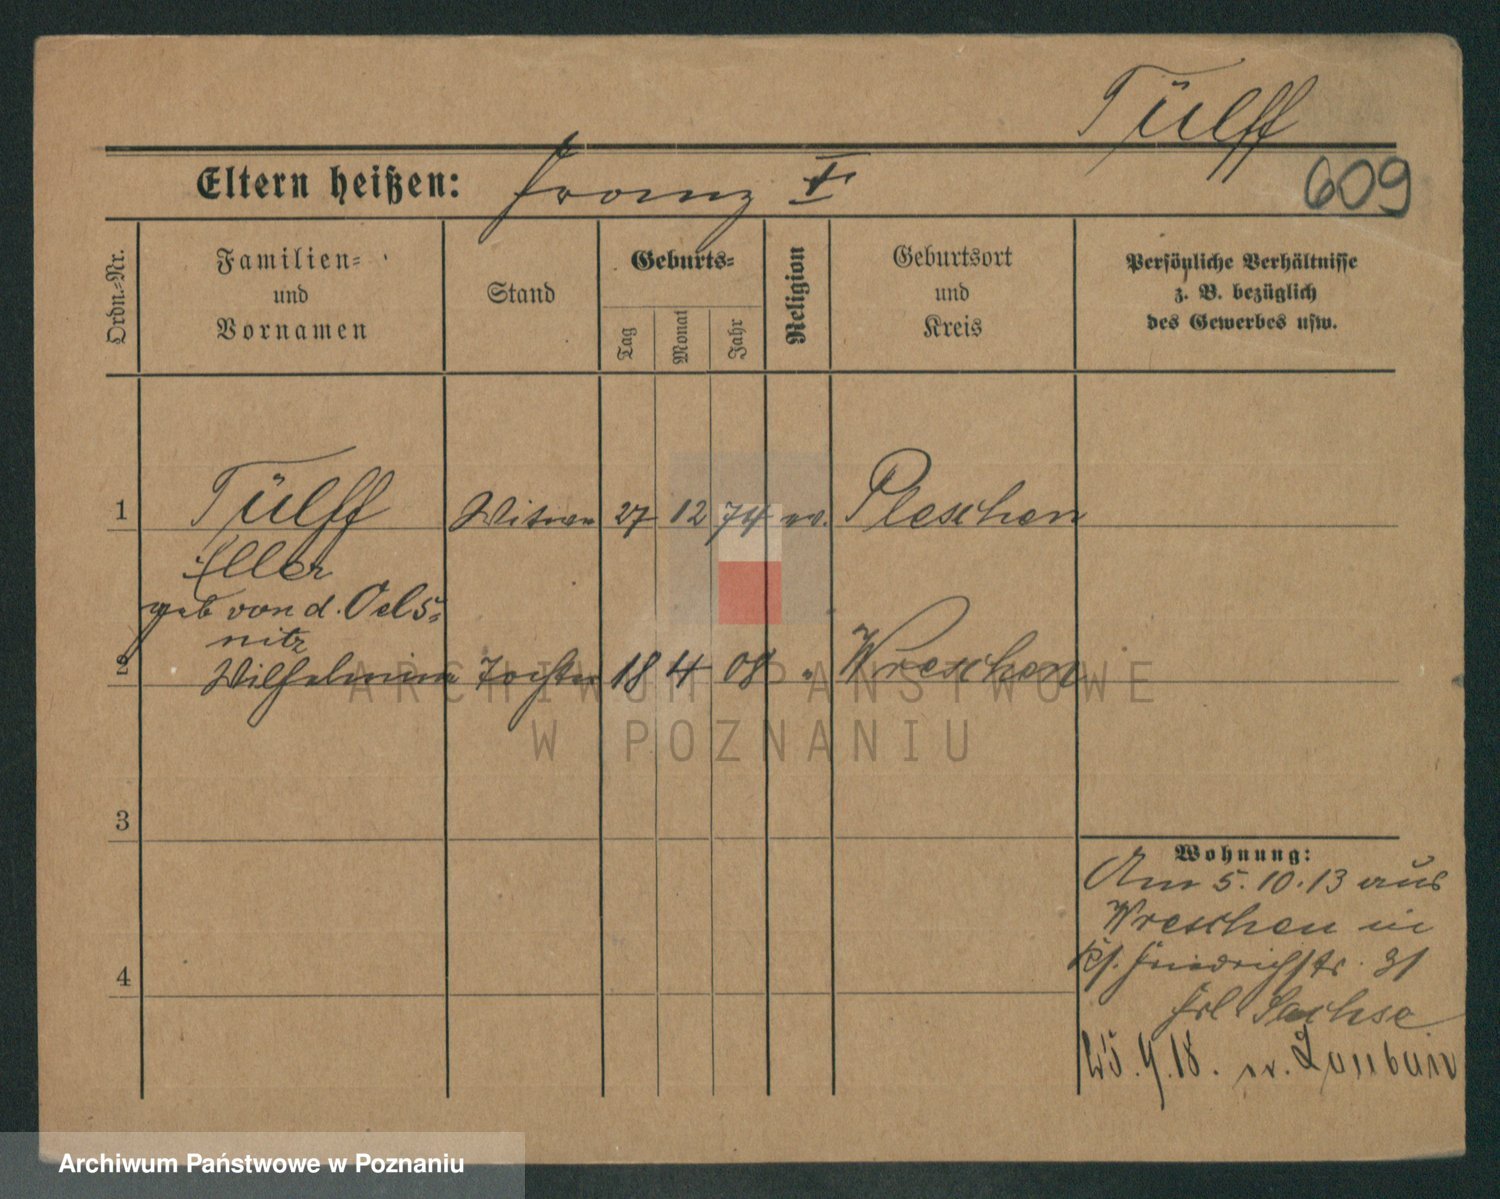 Tülff
Eltern heißen: Franz T.
609
Ordn.-Nr.
Familien-
und
Vornamen
Stand
Geburts-
Tag
Monat
Jahr
Religion
Geburtsort
und
Kreis
Persönliche Verhältnisse
z. B. bezüglich
des Gewerbes usw.
1 Tülff Witwe 27 12 74 ev. Pleschen
geb von d. Oels-
nitz
2 Wilhelmine Tochter 18 4 08 " Wreschen
3
4
Wohnung:
Am 5.10.13 aus
Wreschen in
Friedrichstr. 31
Sachse
25.9.18. n. Lauban
ARCHIWUM PAŃSTWOWE
W POZNANIU
Archiwum Państwowe w Poznaniu